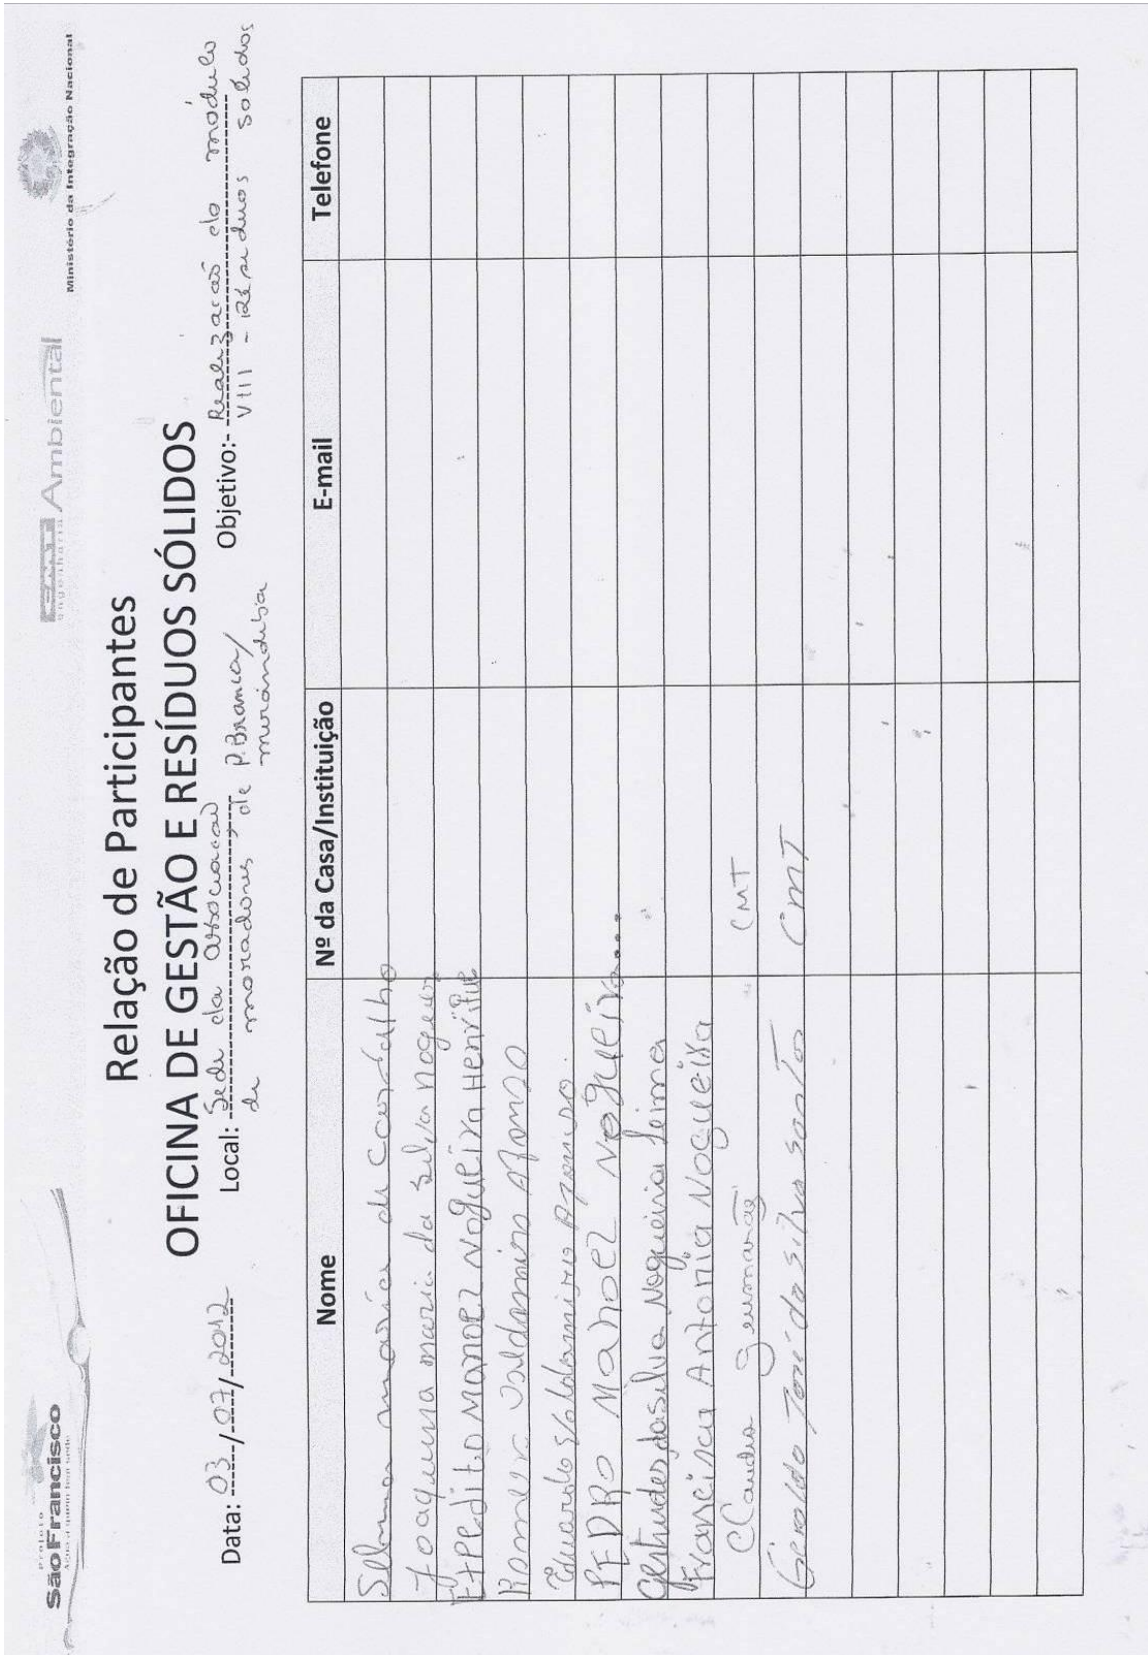 Projeto
São Francisco
Água a quem tem sede
engenharia Ambiental
Ministério da Integração Nacional
Relação de Participantes
OFICINA DE GESTÃO E RESÍDUOS SÓLIDOS
Data: 03/07/2012 Local: Sede da associacao Objetivo: Realizacao do módulo
de moradores de P. Branca/ VIII - Résiduos solidos
mirandiba
Nome Nº da Casa/Instituição E-mail Telefone
Selma maria de Carvalho
Joaquina maria da Silva Nogueira
Expedito Manoel Nogueira Henrique
Romero Valdomiro Afonso
Eduardo Valdomiro Afonso
PEDRO Manoel Nogueira
Gertrudes da Silva Nogueira Leima
Francisca Antonia Nogueira
Claudia Guimarães CMT
Geraldo José da Silva Santos CMT